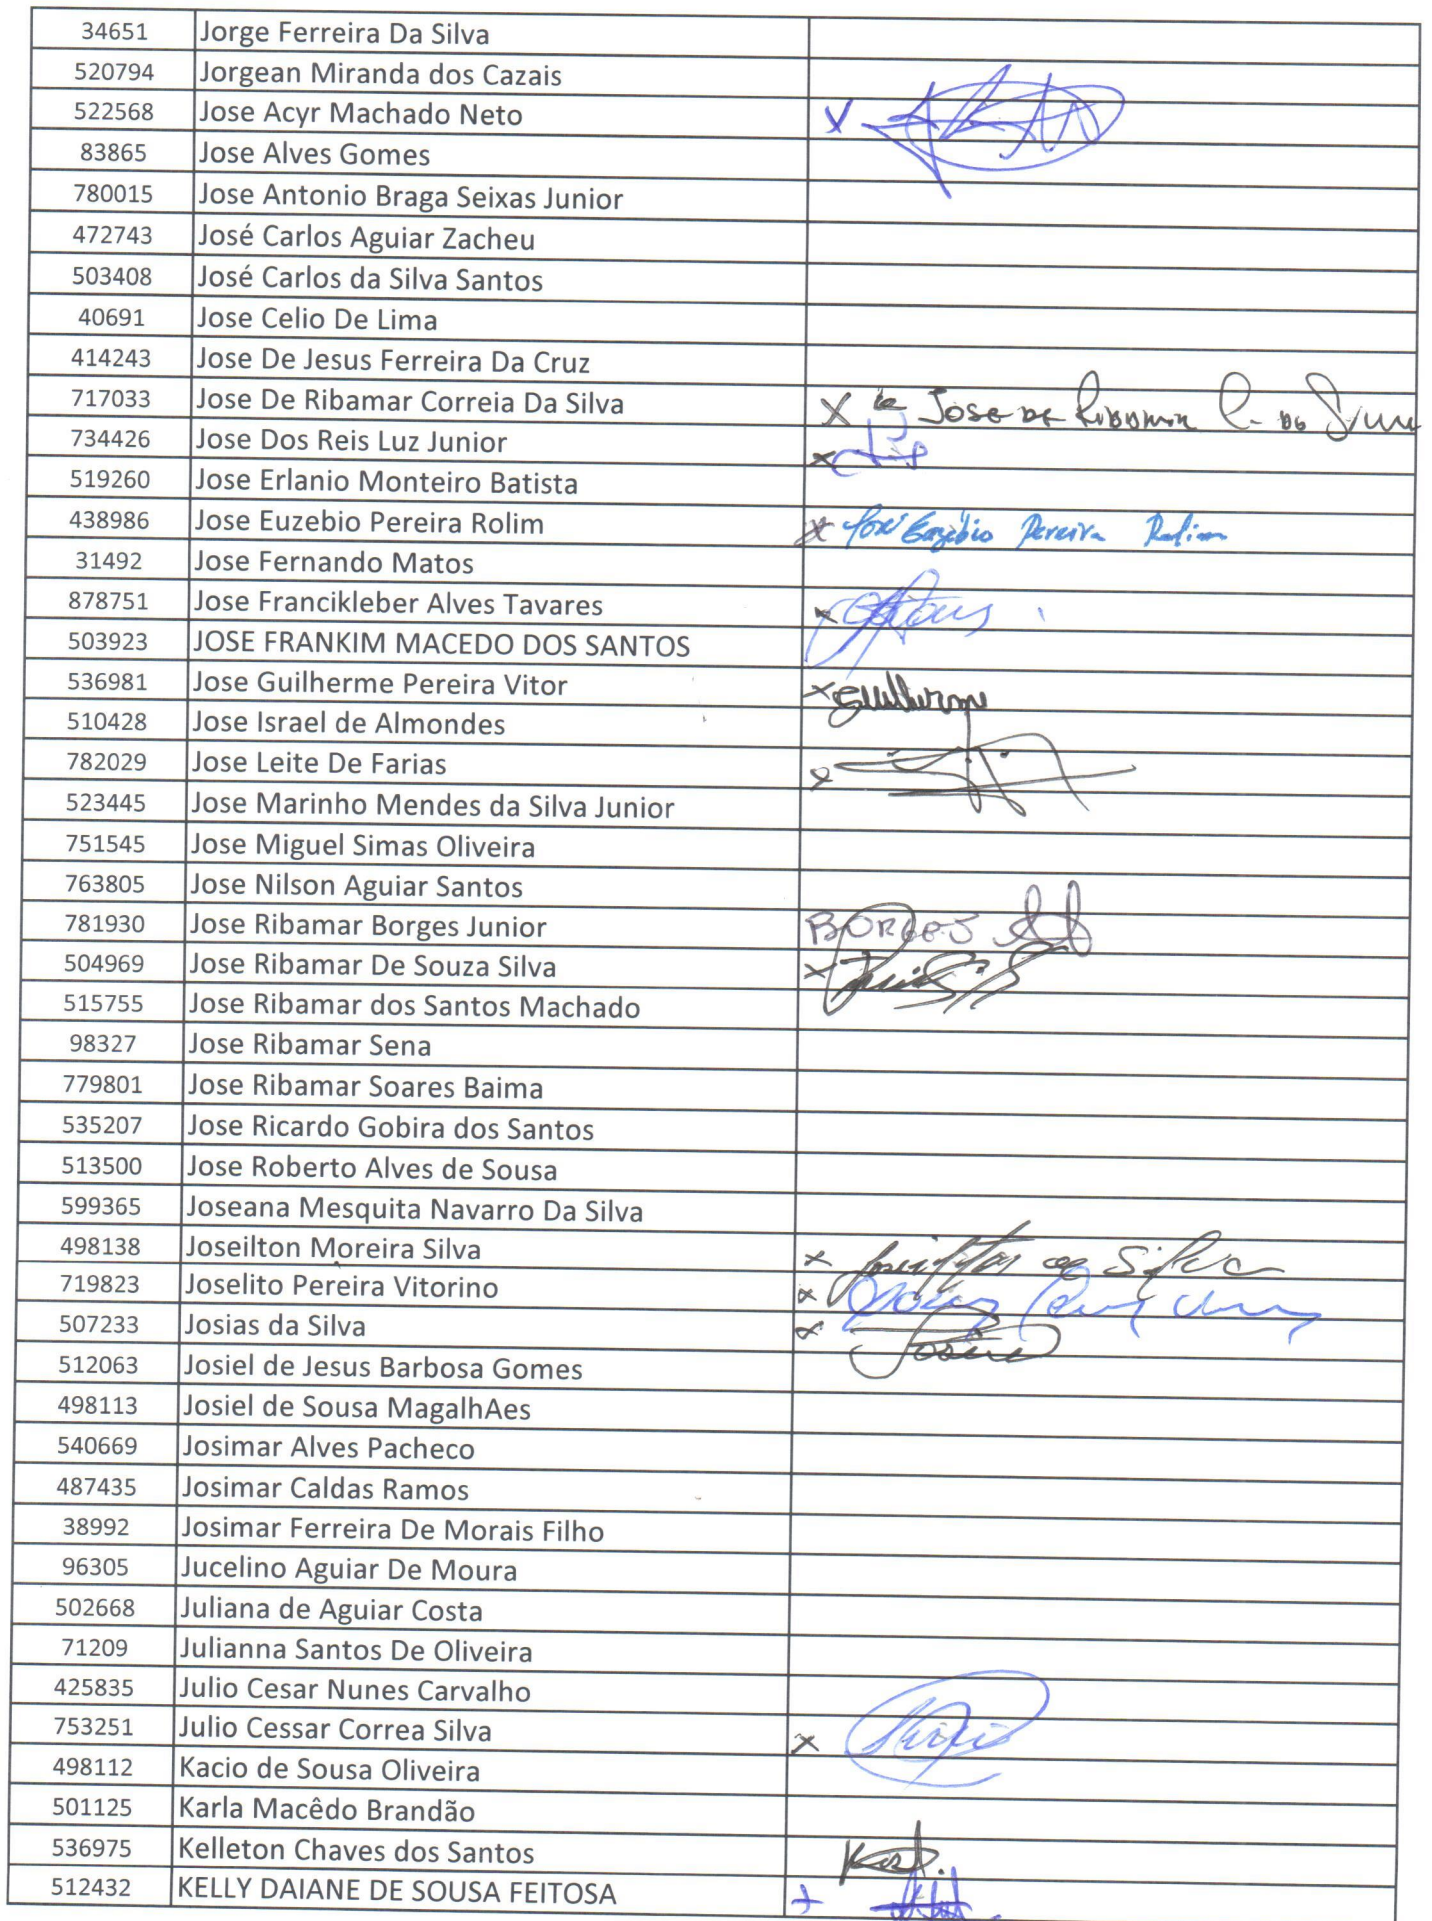 34651 Jorge Ferreira Da Silva
520794 Jorgean Miranda dos Cazais
522568 Jose Acyr Machado Neto
83865 Jose Alves Gomes
780015 Jose Antonio Braga Seixas Junior
472743 José Carlos Aguiar Zacheu
503408 José Carlos da Silva Santos
40691 Jose Celio De Lima
414243 Jose De Jesus Ferreira Da Cruz
717033 Jose De Ribamar Correia Da Silva X JOSE DE RIBAMAR C. DA Silva
734426 Jose Dos Reis Luz Junior x
519260 Jose Erlanio Monteiro Batista
438986 Jose Euzebio Pereira Rolim x José Euzébio Pereira Rolim
31492 Jose Fernando Matos
878751 Jose Francikleber Alves Tavares x
503923 JOSE FRANKIM MACEDO DOS SANTOS
536981 Jose Guilherme Pereira Vitor x Guilherme
510428 Jose Israel de Almondes
782029 Jose Leite De Farias x
523445 Jose Marinho Mendes da Silva Junior
751545 Jose Miguel Simas Oliveira
763805 Jose Nilson Aguiar Santos
781930 Jose Ribamar Borges Junior BORGES
504969 Jose Ribamar De Souza Silva x
515755 Jose Ribamar dos Santos Machado
98327 Jose Ribamar Sena
779801 Jose Ribamar Soares Baima
535207 Jose Ricardo Gobira dos Santos
513500 Jose Roberto Alves de Sousa
599365 Joseana Mesquita Navarro Da Silva
498138 Joseilton Moreira Silva x Joseilton Silva
719823 Joselito Pereira Vitorino x
507233 Josias da Silva x Josias
512063 Josiel de Jesus Barbosa Gomes
498113 Josiel de Sousa MagalhAes
540669 Josimar Alves Pacheco
487435 Josimar Caldas Ramos
38992 Josimar Ferreira De Morais Filho
96305 Jucelino Aguiar De Moura
502668 Juliana de Aguiar Costa
71209 Julianna Santos De Oliveira
425835 Julio Cesar Nunes Carvalho
753251 Julio Cessar Correa Silva x
498112 Kacio de Sousa Oliveira
501125 Karla Macêdo Brandão
536975 Kelleton Chaves dos Santos
512432 KELLY DAIANE DE SOUSA FEITOSA